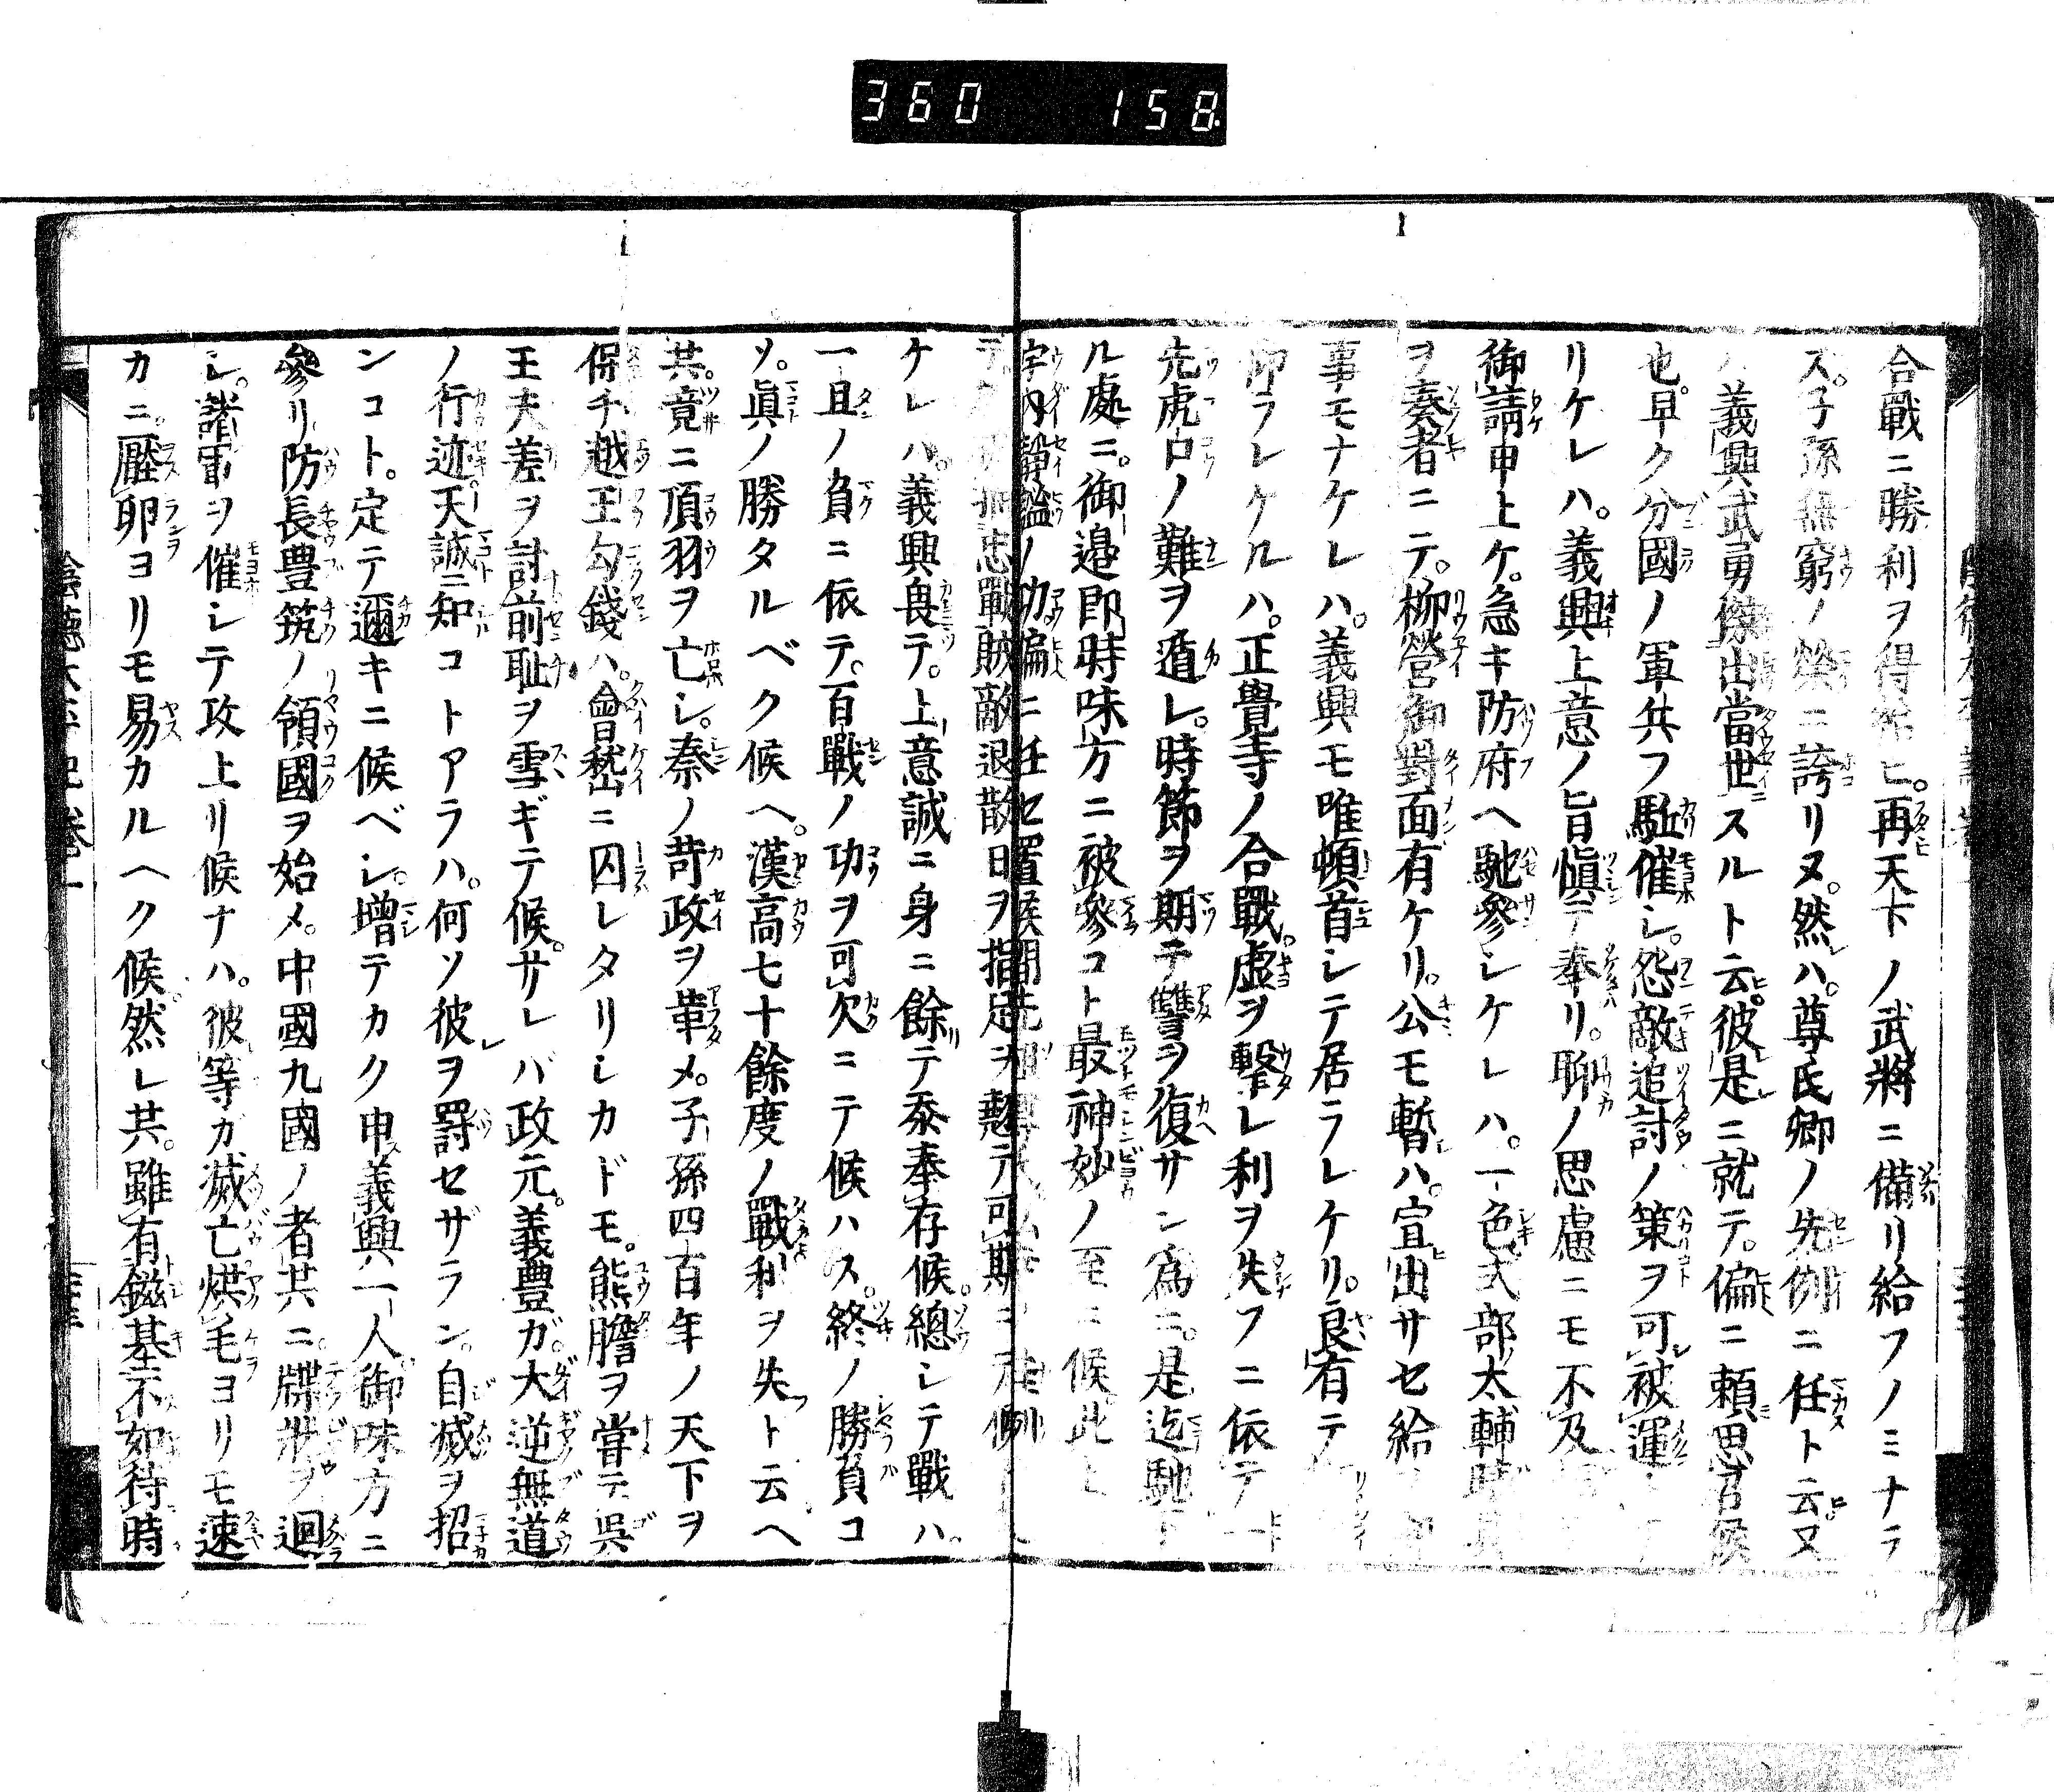 360 158
合戰ニ勝利ヲ得給ヒ。再天下ノ武將ニ備リ給フノミナラ
ス。子孫無窮ノ榮ニ誇リヌ。然ハ。尊氏卿ノ先例ニ任ト云又
義興武勇傑出當世スルト云。彼是ニ就テ。偏ニ頼思召候
也。早ク分國ノ軍兵フ駈催シ。怨敵追討ノ策ヲ可被運
リケレハ。義興上意ノ旨愼テ奉リ。聊ノ思慮ニモ不及
御請申上ケ。急キ防府ヘ馳參シケレハ。一色式部太輔時其
ヲ奏者ニテ。柳營御對面有ケリ。公モ暫ハ。宣出サセ給
事モナケレハ。義興モ唯頓首シテ居ラレケリ。良有テ
仰ラレケルハ。正覺寺ノ合戰。虚ヲ撃レ利ヲ失フニ依テ一
先虎口ノ難ヲ遁レ。時節ヲ期テ讐ヲ復サン爲ニ。是迄馳下
ル處ニ。御邉即時味方ニ被參コト最神妙ノ至ニ候此上
宇内靜謐ノ功偏ニ任セ置候間先
忠戰賊敵退散日ヲ指足ヲ翹テ可期
ケレハ。義興畏テ。上意誠ニ身ニ餘テ忝奉存候。總シテ戰ハ。
一旦ノ負ニ依テ。百戰ノ功ヲ可欠ニテ候ハス。終ノ勝負コ
ソ。眞ノ勝タルベク候ヘ。漢高七十餘度ノ戰利ヲ失ト云ヘ
共。竟ニ項羽ヲ亡シ。秦ノ苛政ヲ革メ。子孫四百年ノ天下ヲ
保チ越王勾錢ハ。會嵆ニ囚レタリシカドモ。熊膽ヲ甞テ呉
王夫差ヲ討前耻ヲ雪ギテ候。サレバ政元。義豊ガ。大逆無道
ノ行迹天誠ニ知コトアラハ。何ソ彼ヲ罸セザラン。自滅ヲ招
ンコト。定テ邇キニ候ベシ。増テカク申義興一人御味方ニ
參リ防長豊筑ノ領國ヲ始メ。中國九國ノ者共ニ。牒狀ヲ廻
シ。諸軍ヲ催シテ攻上リ候ナハ。彼等ガ滅亡烘毛ヨリモ速
カニ。壓卵ヨリモ易カルヘク候。然レ共。雖有鎡基不如待時
陰徳太平記卷一